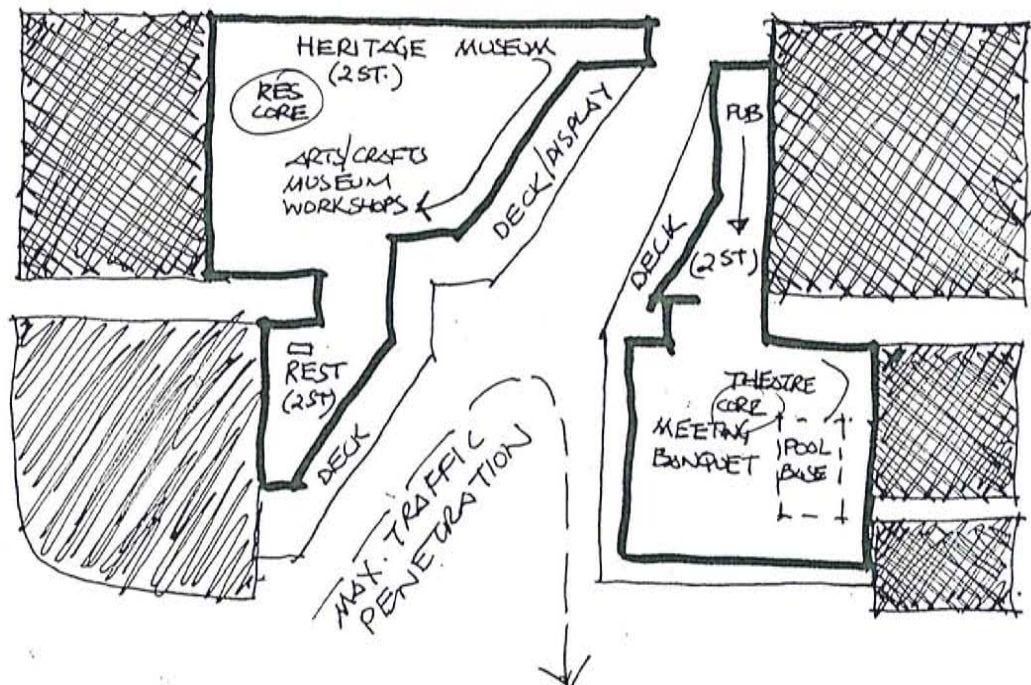 HERITAGE MUSEUM
(2 ST.)
RES
CORE
ARTS/CRAFTS
MUSEUM
WORKSHOPS
DECK/DISPLAY
PUB
(2 ST)
DECK
REST
(2 ST)
DECK
MAX. TRAFFIC
PENETRATION
THEATRE
CORE
MEETING
BANQUET
POOL
BASE